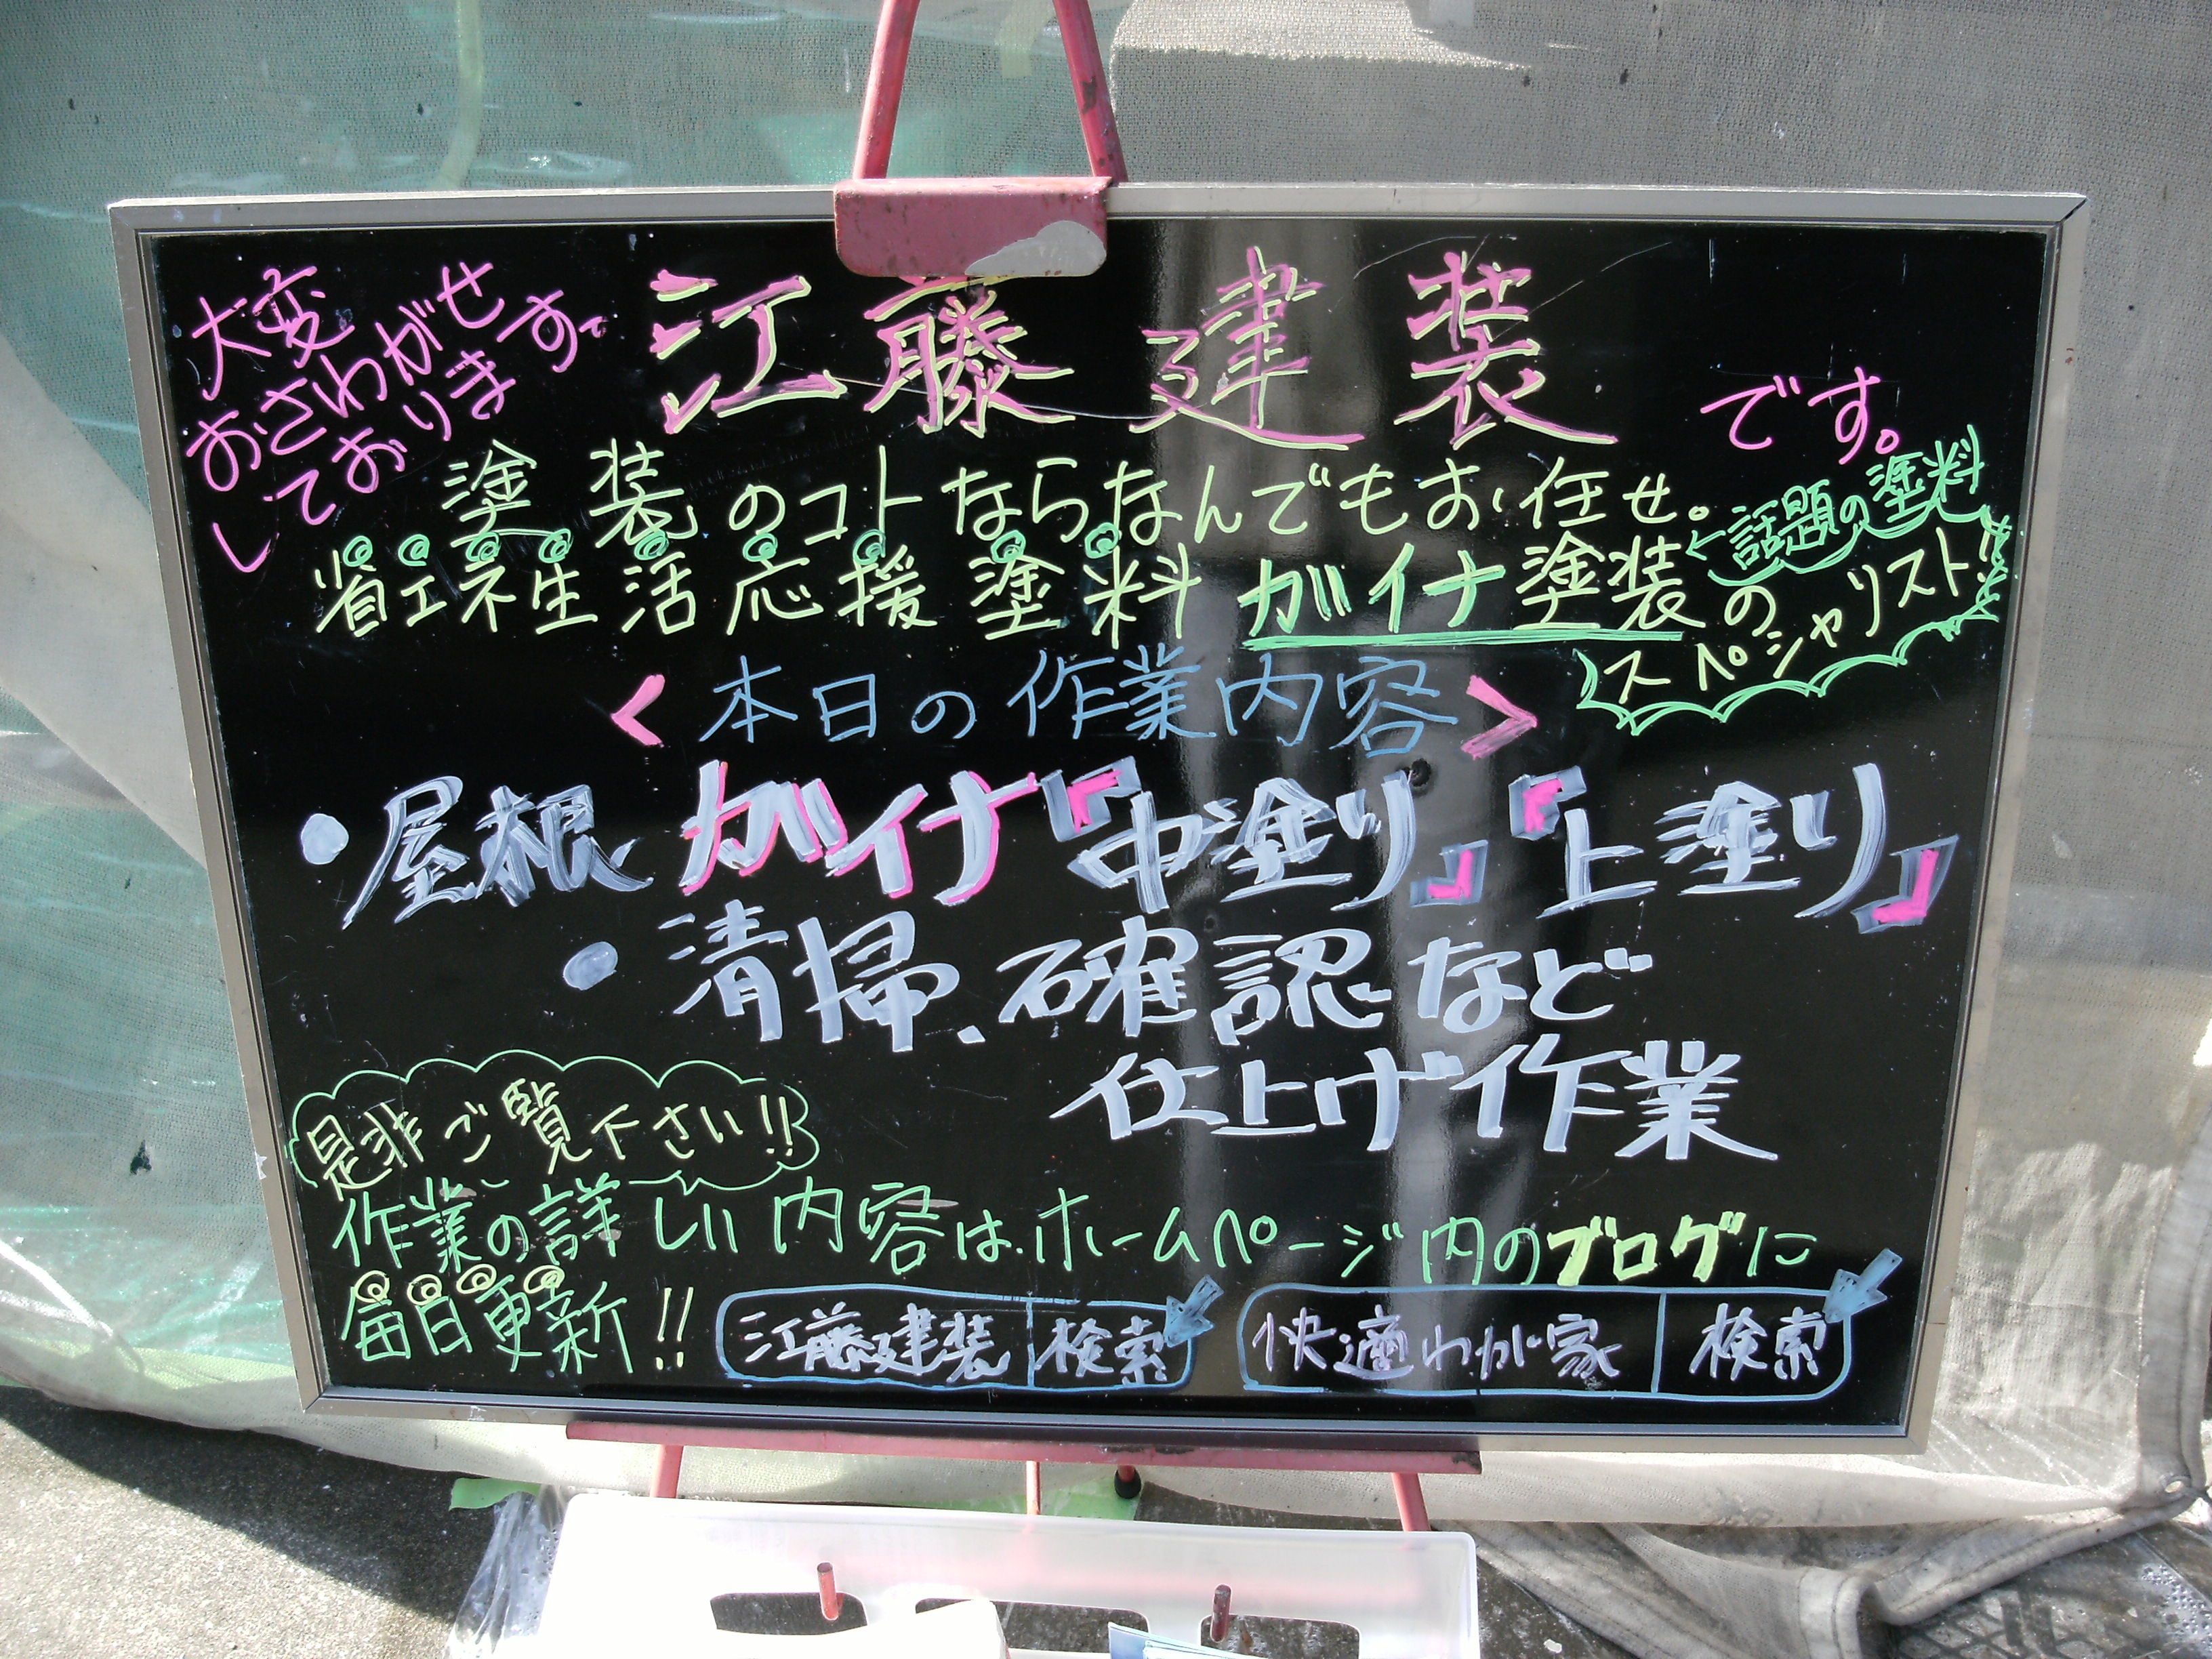 大変
おさわがせ
しております。
江藤建装
です。
塗装のコトならなんでもお任せ。
←話題の塗料
省エネ生活応援塗料ガイナ塗装の
スペシャリスト!!
<本日の作業内容>
・屋根ガイナ『中塗り』『上塗り』
・清掃、確認など
仕上げ作業
是非ご覧下さい!!
作業の詳しい内容は、ホームページ内のブログに
毎日更新!!
江藤建装 検索
快適わが家 検索